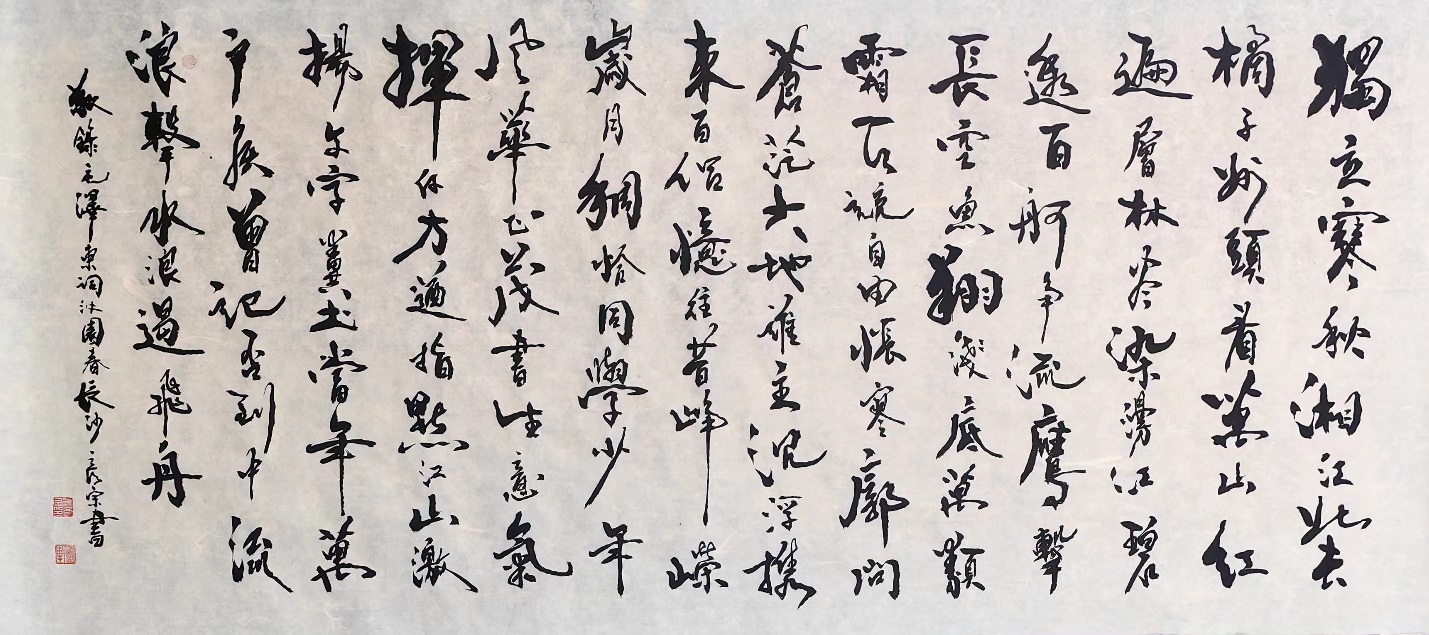 獨立寒秋湘江北去
橘子州頭看萬山紅
遍層林盡染漫江碧
透百舸争流鷹擊
長空魚翔淺底萬類
霜天競自由悵寥廓問
蒼茫大地誰主沉浮攜
來百侣憶往昔峥嶸
歲月稠恰同學少年
風華正茂書生意氣
揮斥方遒指點江山激
揚文字糞土當年萬
户侯曾記否到中流
浪擊水浪遏飛舟
敬錄毛澤東詞沁園春長沙 宗書